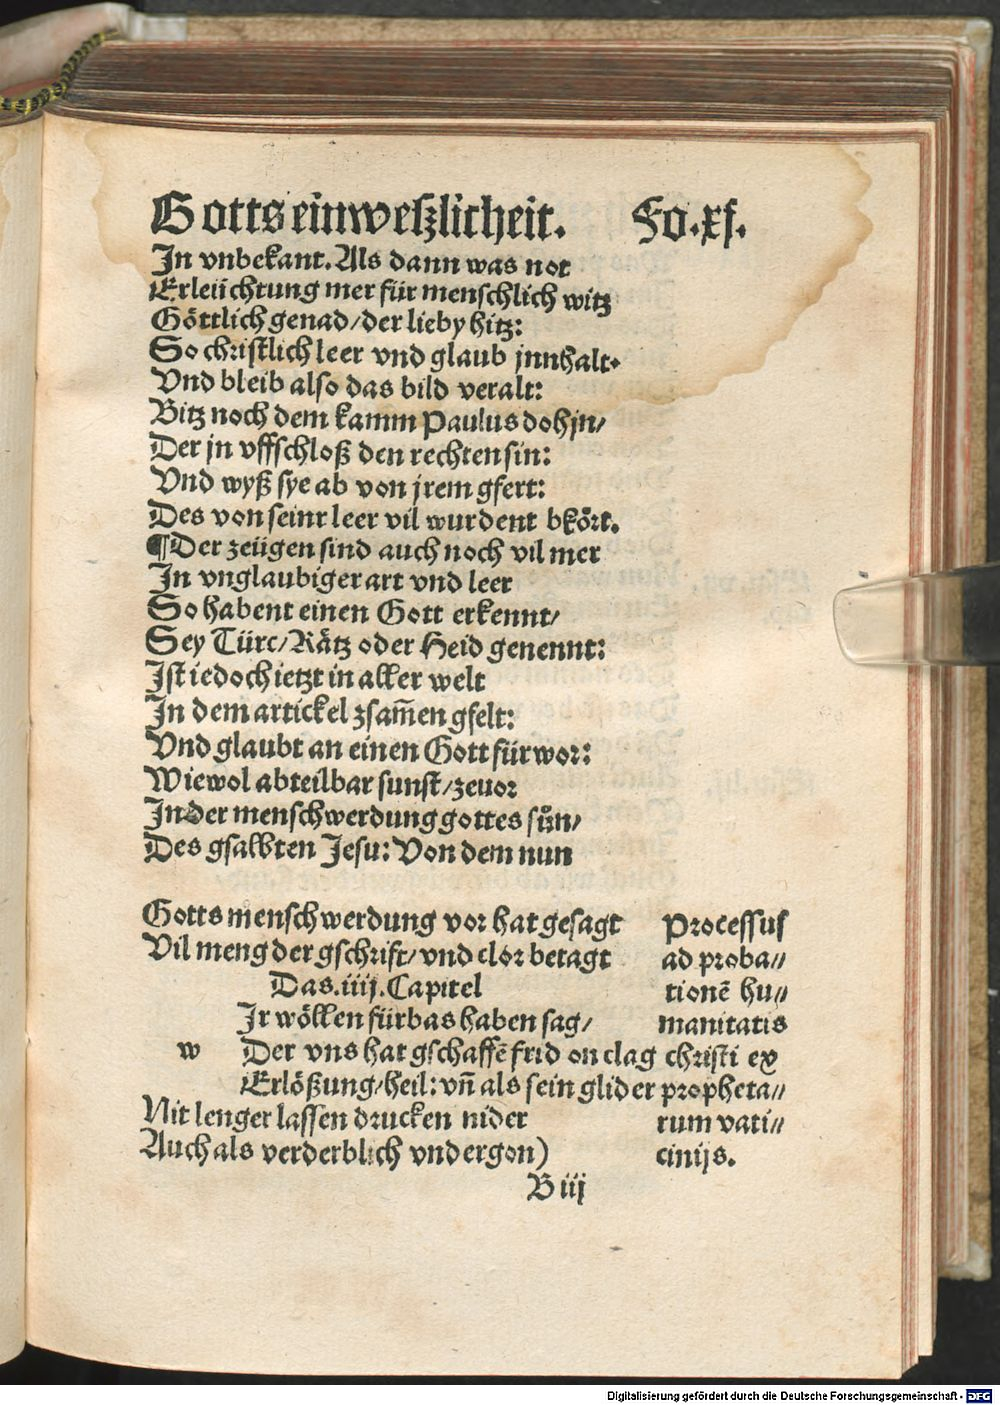 Gotts einweszlicheit. Fo.xj.
In vnbekant. Als dann was not
Erleüchtung mer für menschlich witz
Göttlich genad/ der lieby hitz:
So christlich leer vnd glaub jnnhalt.
Vnd bleib also das bild veralt:
Bitz noch dem kamm Paulus dohjn/
Der jn vffschloß den rechten sin:
Vnd wyß sye ab von jrem gfert:
Des von seinr leer vil wurdent bkört.
¶Der zeügen sind auch noch vil mer
In vnglaubiger art vnd leer
So habent einen Gott erkennt/
Sey Türc/ Rätz oder Heid genennt:
Ist iedoch ietzt in aller welt
In dem artickel zsam̄en gfelt:
Vnd glaubt an einen Gott für wor:
Wiewol abteilbar sunst/ zeuor
In der menschwerdung gottes sůn/
Des gsalbten Jesu: Von dem nun
Gotts menschwerdung vor hat gesagt
Vil meng der gschrift/ vnd clor betagt
Das .iiij. Capitel
Ir wöllen fürbas haben sag/
w Der vns hat gschaffē frid on clag
Erlößung/ heil: vn̄ als sein glider
Nit lenger lassen drucken nider
Auch als verderblich vndergon)
Processus
ad proba//
tionē hu//
manitatis
christi ex
propheta//
rum vati//
cinijs.
B iij
Digitalisierung gefördert durch die Deutsche Forschungsgemeinschaft - DFG